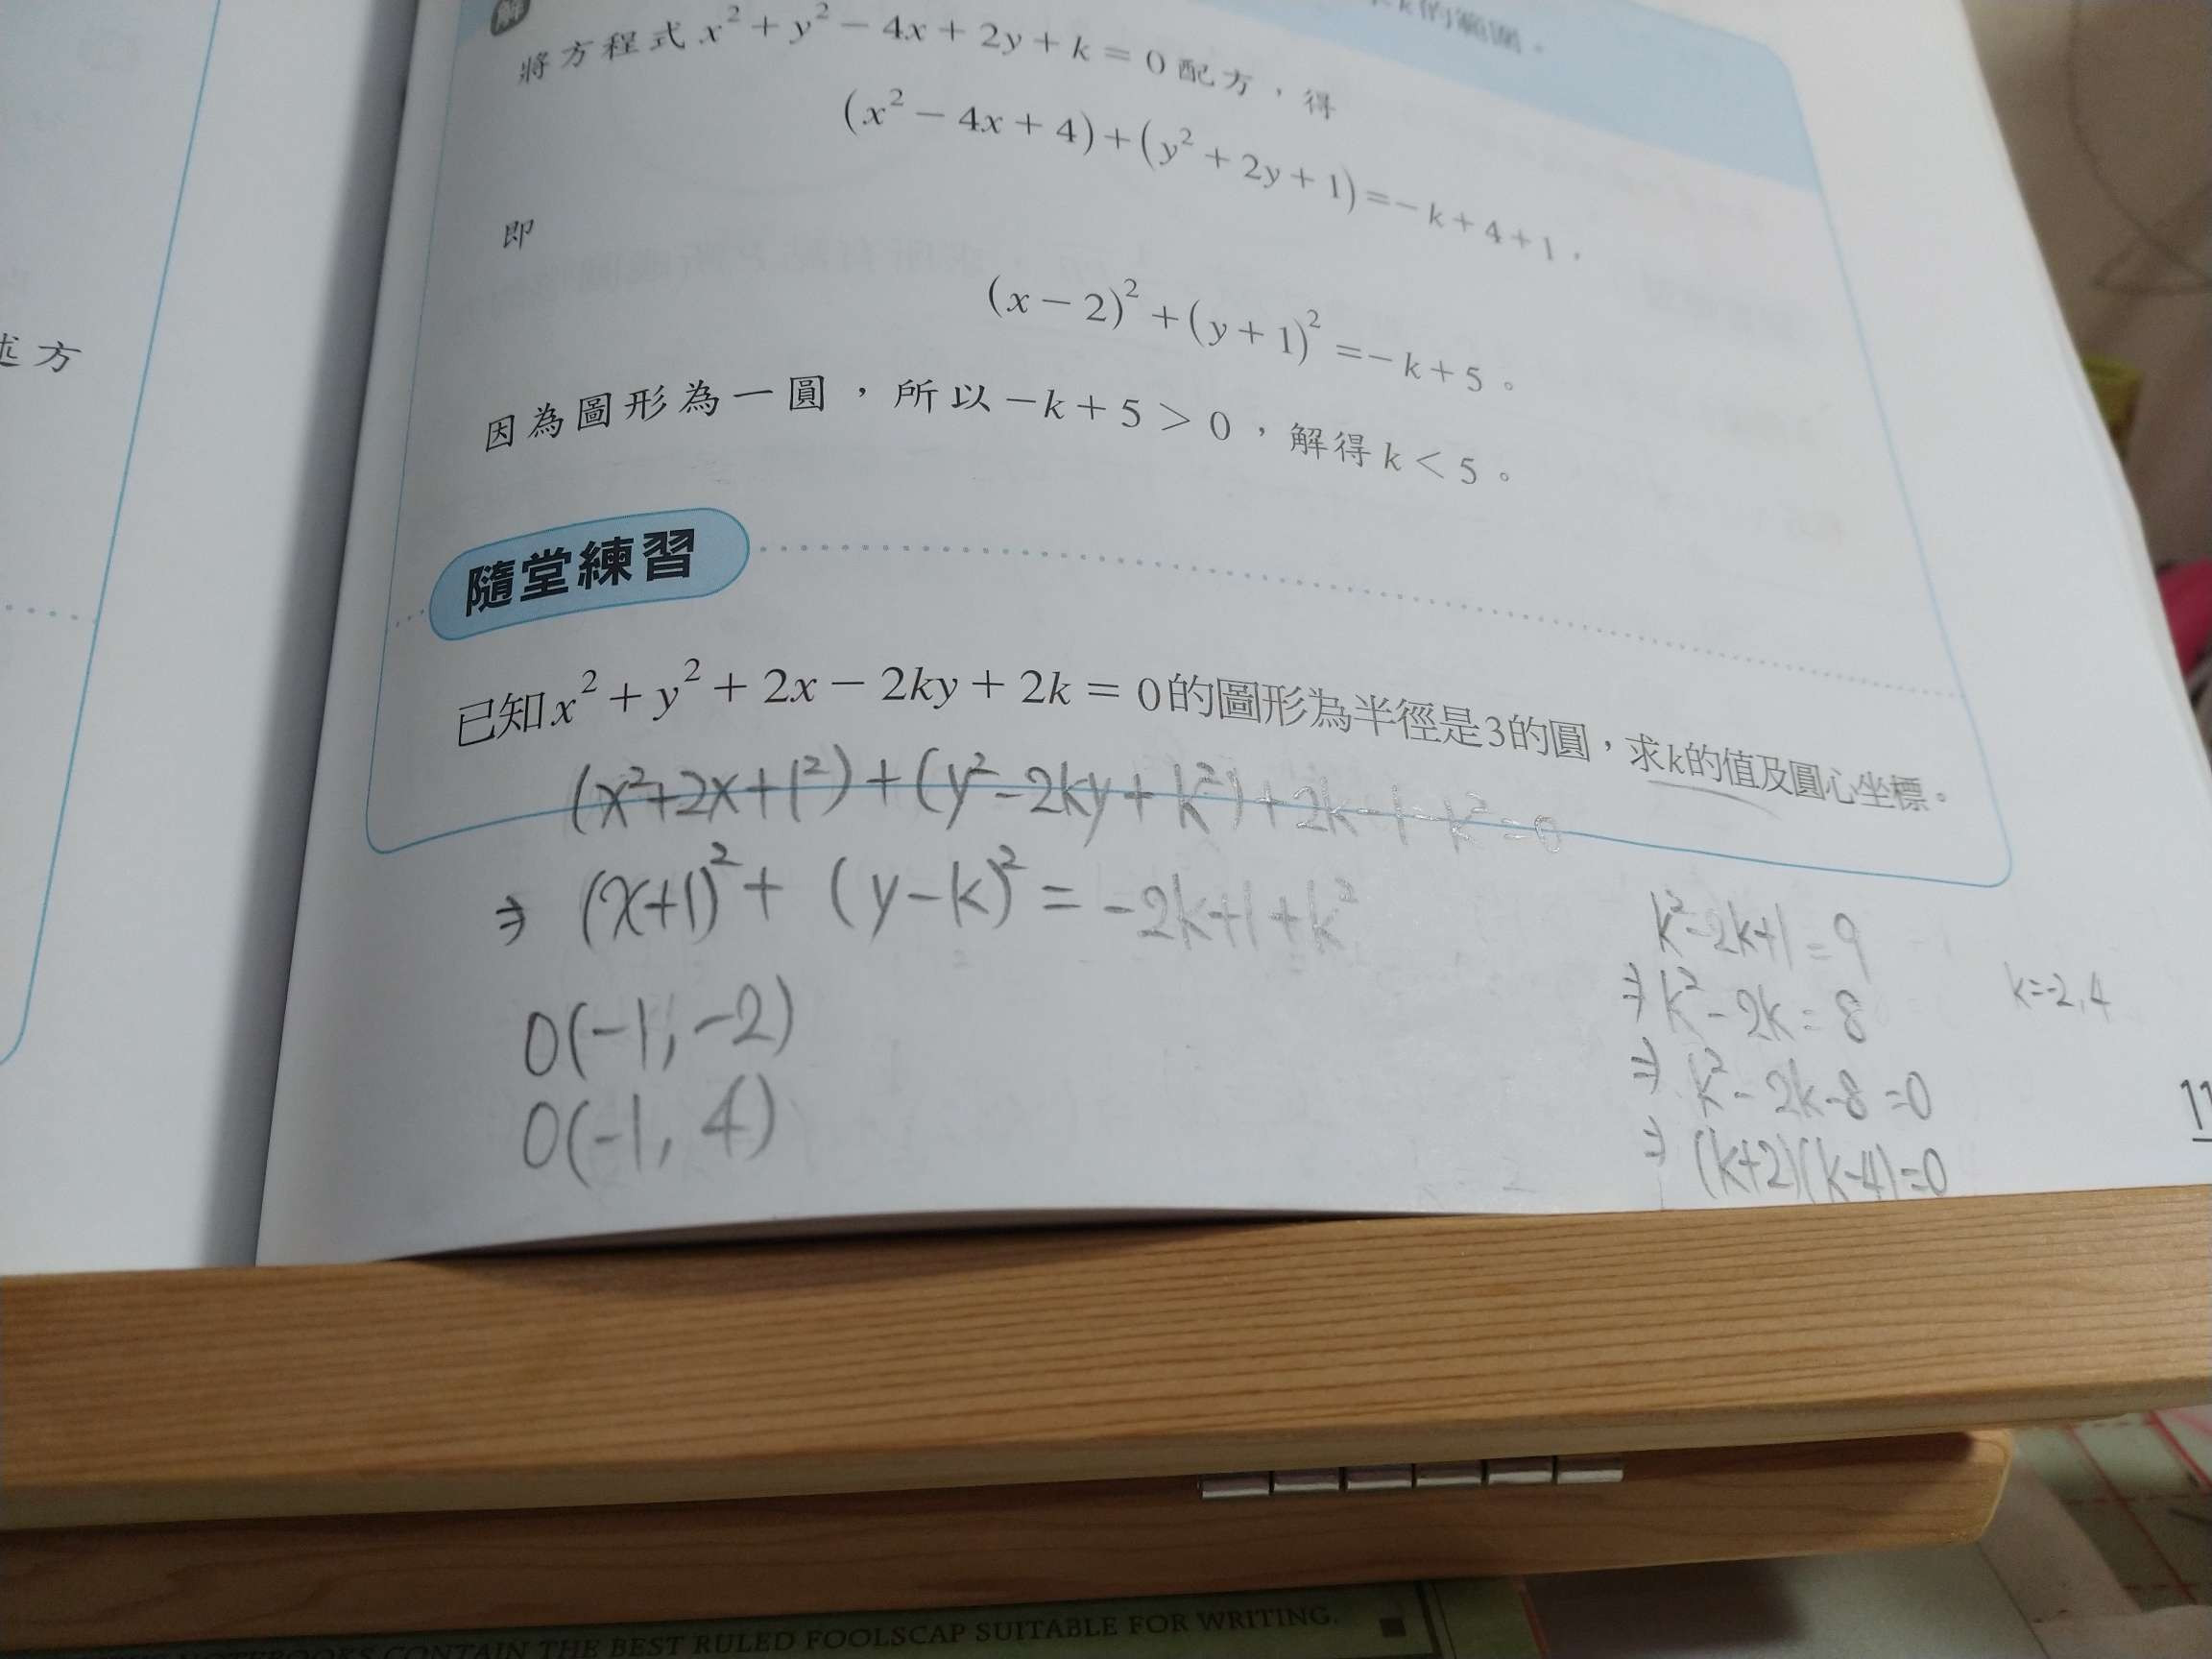 k的範圍。
解
將方程式x²+y²-4x+2y+k=0配方，得
(x²-4x+4)+(y²+2y+1)=-k+4+1，
即
(x-2)²+(y+1)²=-k+5。
因為圖形為一圓，所以-k+5>0，解得k<5。
述方
隨堂練習
已知x²+y²+2x-2ky+2k=0的圖形為半徑是3的圓，求k的值及圓心坐標。
(x²+2x+1²)+(y²-2ky+k²)+2k-1-k²=0
⇒ (x+1)²+(y-k)²=-2k+1+k²
O(-1,-2)
O(-1,4)
k²-2k+1=9
⇒ k²-2k=8
⇒ k²-2k-8=0
⇒ (k+2)(k-4)=0
k=-2,4
11
NOTEBOOKS CONTAIN THE BEST RULED FOOLSCAP SUITABLE FOR WRITING.